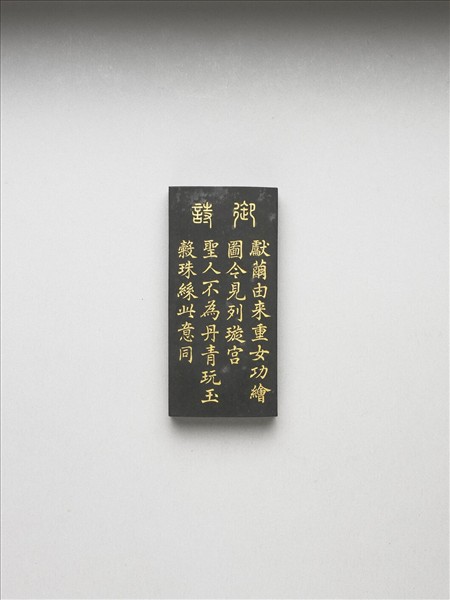 御詩
獻繭由來重女功繪
圖今見列璇宮
聖人不為丹青玩玉
糓珠絲此意同